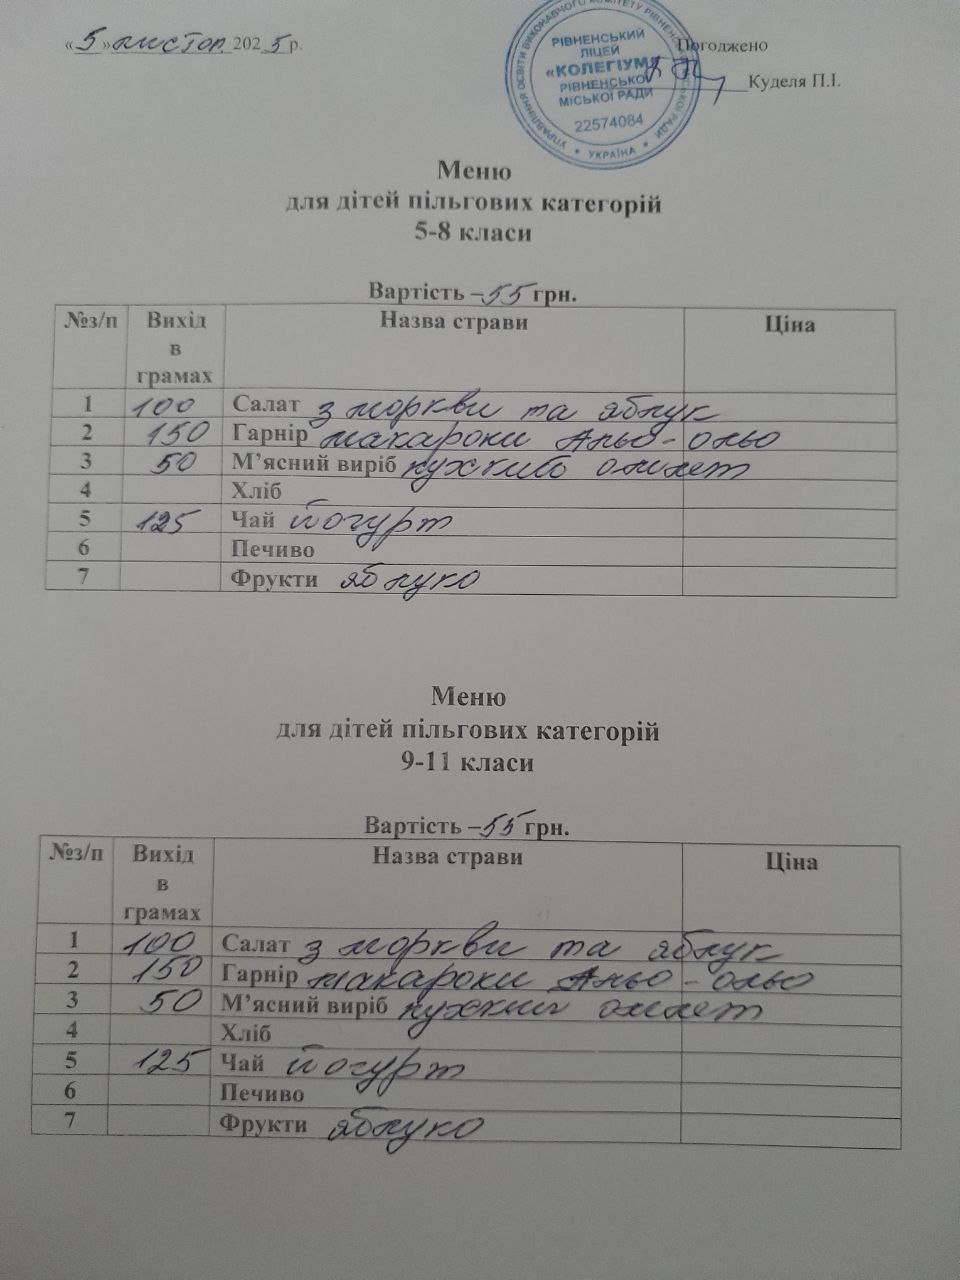 «5» листоп. 2025р.
Погоджено
Куделя П.І.
УПРАВЛІННЯ ОСВІТИ ВИКОНАВЧОГО КОМІТЕТУ РІВНЕНСЬКОЇ МІСЬКОЇ РАДИ * УКРАЇНА *
РІВНЕНСЬКИЙ
ЛІЦЕЙ
«КОЛЕГІУМ»
РІВНЕНСЬКОЇ
МІСЬКОЇ РАДИ
22574084
Меню
для дітей пільгових категорій
5-8 класи
Вартість –55 грн.
№з/п Вихід в грамах Назва страви Ціна
1 100 Салат з моркви та яблук
2 150 Гарнір макарони Альо-ольо
3 50 М’ясний виріб пухкий омлет
4 Хліб
5 125 Чай йогурт
6 Печиво
7 Фрукти яблуко
Меню
для дітей пільгових категорій
9-11 класи
Вартість –55 грн.
№з/п Вихід в грамах Назва страви Ціна
1 100 Салат з моркви та яблук
2 150 Гарнір макарони Альо-ольо
3 50 М’ясний виріб пухкий омлет
4 Хліб
5 125 Чай йогурт
6 Печиво
7 Фрукти яблуко